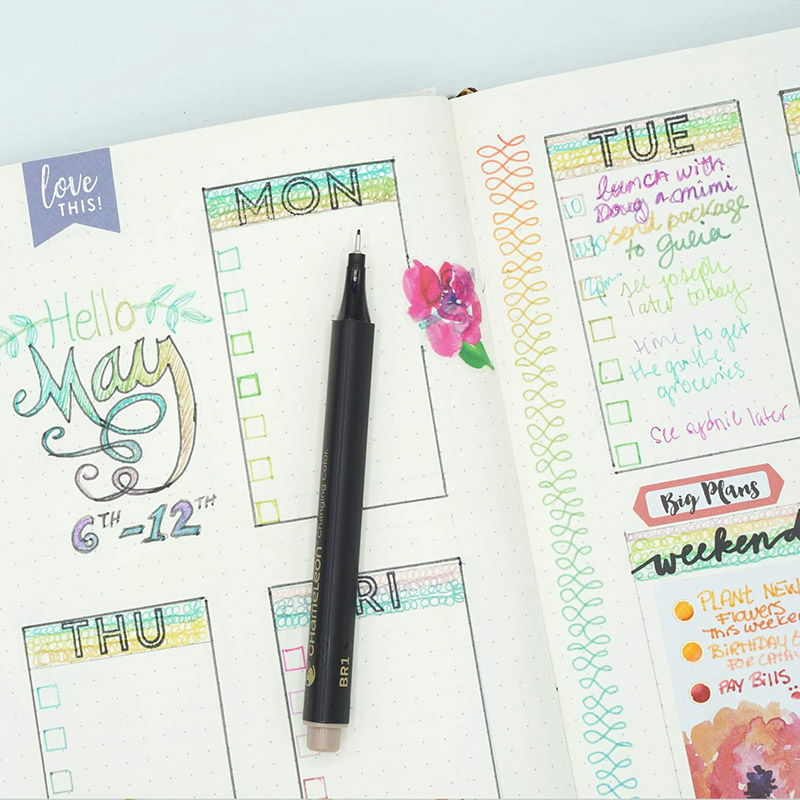 love
THIS!
Hello
May
6TH-12TH
MON
THU
RI
CHAMELEON Changing Color
BR1
TUE
lunch with
Doug & mimi
send package
to Julia
see joseph
later today
time to get
the
groceries
See sydnie later
Big Plans
weekend
PLANT NEW
FLOWERS
THIS WEEKEN
BIRTHDAY
FOR CATA
PAY BILLS